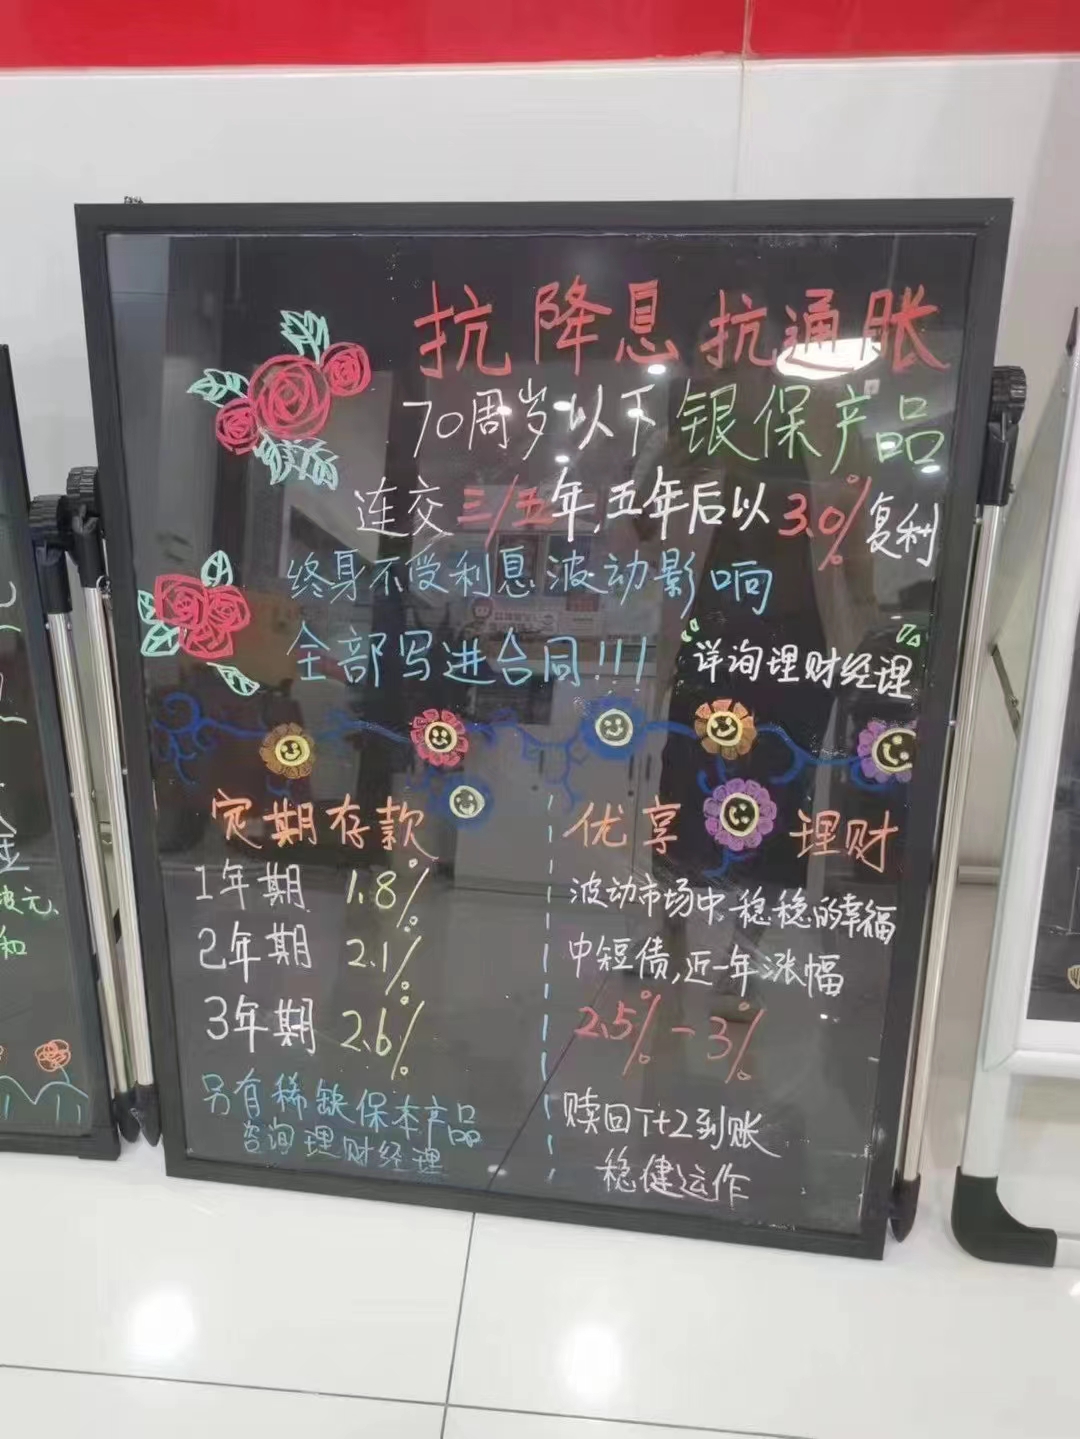 抗降息抗通胀
70周岁以下银保产品
连交三/五年,五年后以3.0%复利
终身不受利息波动影响
全部写进合同!!!
详询理财经理
定期存款
1年期 1.8%
2年期 2.1%
3年期 2.6%
另有稀缺保本产品
咨询理财经理
优享理财
波动市场中,稳稳的幸福
中短债,近一年涨幅
2.5%-3%
赎回T+2到账
稳健运作
金
和